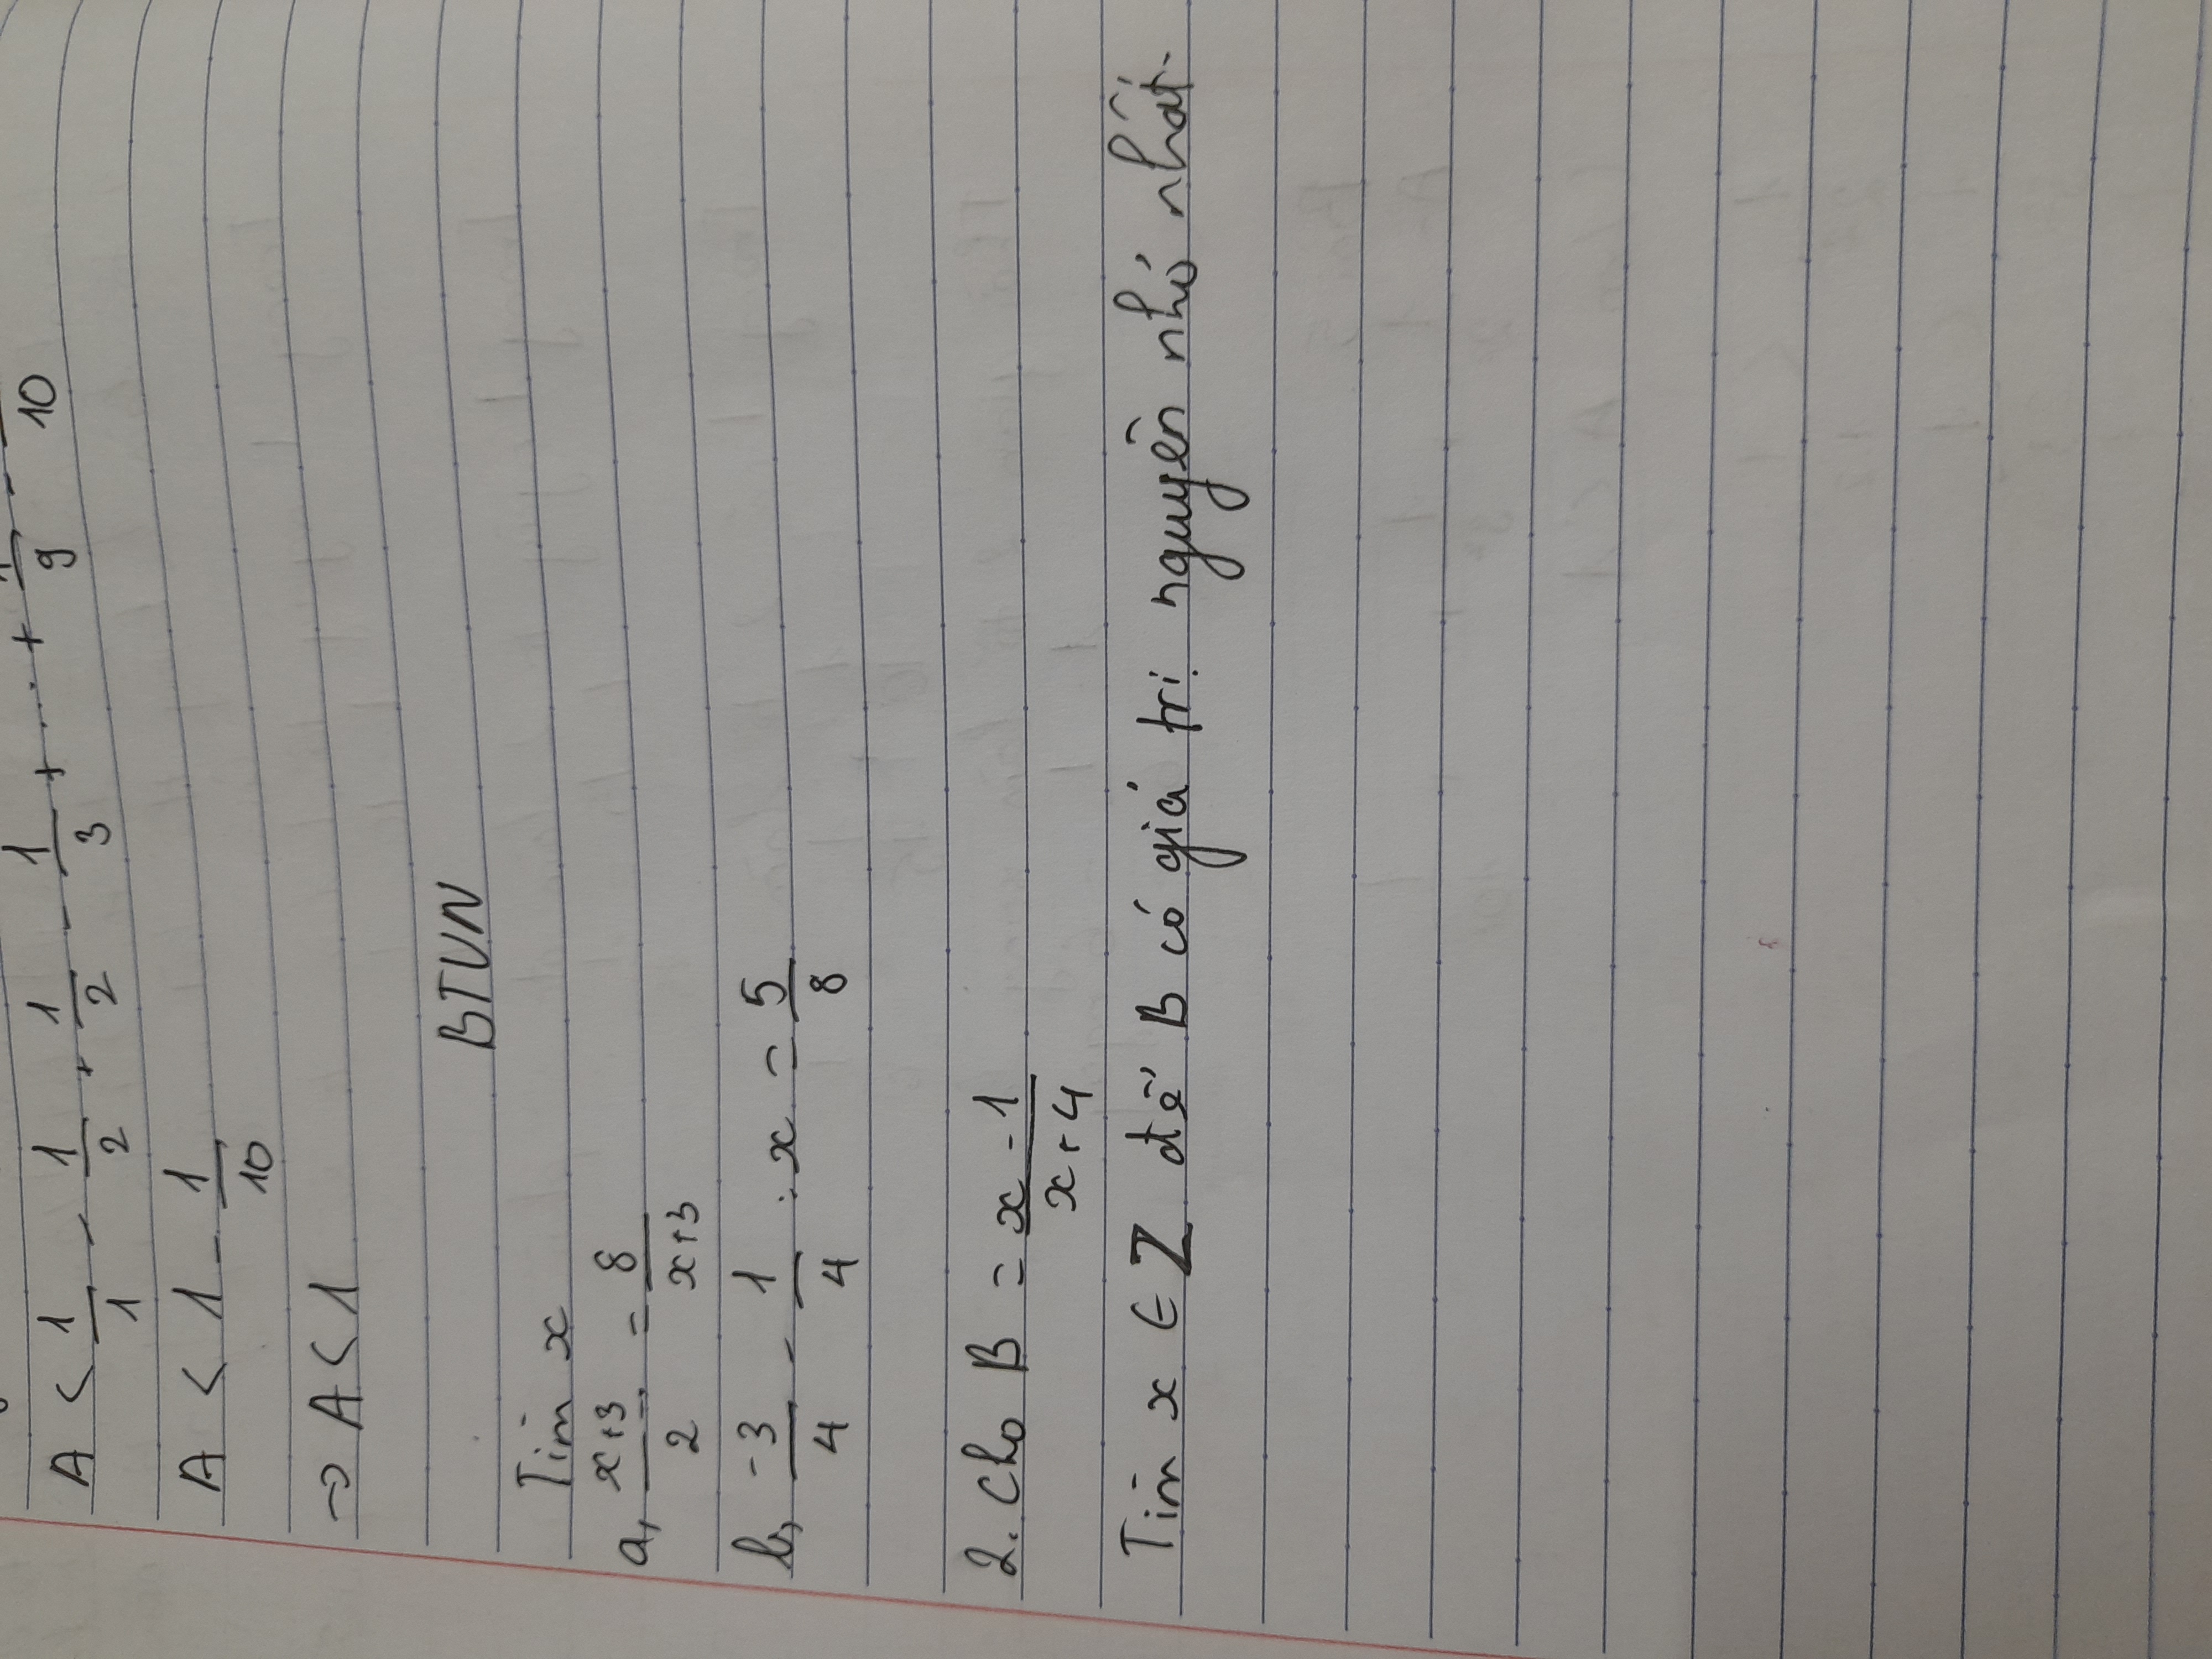 A < 1/1 - 1/2 + 1/2 - 1/3 + .... + 1/9 - 10
A < 1 - 1/10
→ A < 1
BTVN
Tìm x
a, x+3/2 = 8/x+3
b, -3/4 - 1/4 : x = 5/8
2. Cho B = x-1/x+4
Tìm x ∈ Z để B có giá trị nguyên nhỏ nhất.